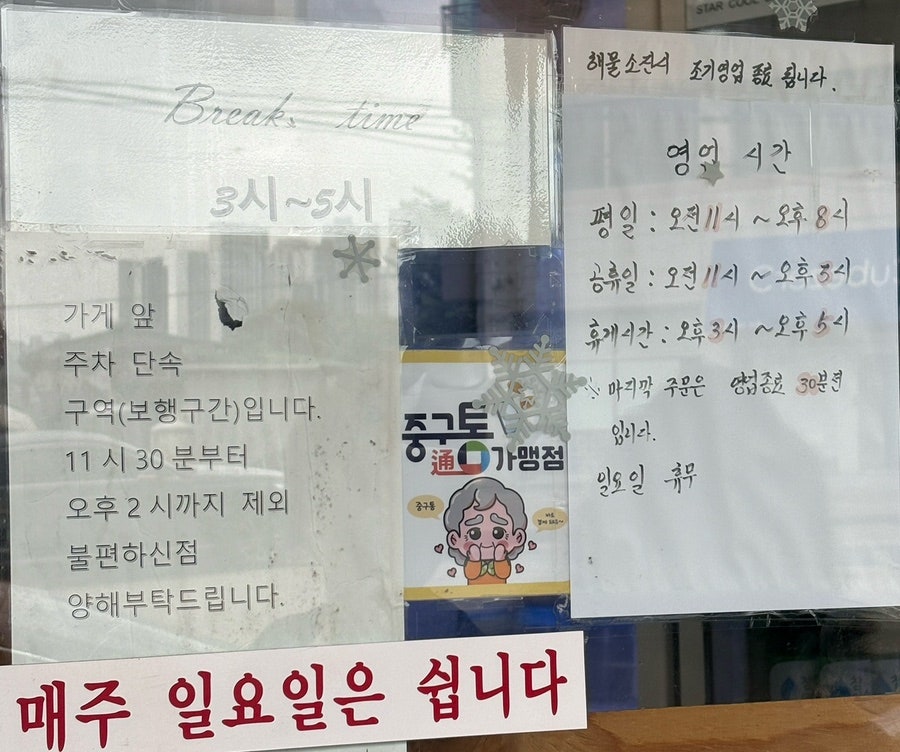 STAR COOL
Break time
3시~5시
가게 앞
주차 단속
구역(보행구간)입니다.
11 시 30 분부터
오후 2 시까지 제외
불편하신점
양해부탁드립니다.
중구통
通 가맹점
중구통
매주 일요일은 쉽니다
해물소진시 조기영업 종료 됩니다.
영업 시간
평일 : 오전 11시 ~ 오후 8시
공휴일 : 오전 11시 ~ 오후 3시
휴게시간 : 오후 3시 ~ 오후 5시
※ 마지막 주문은 영업종료 30분전
입니다.
일요일 휴무